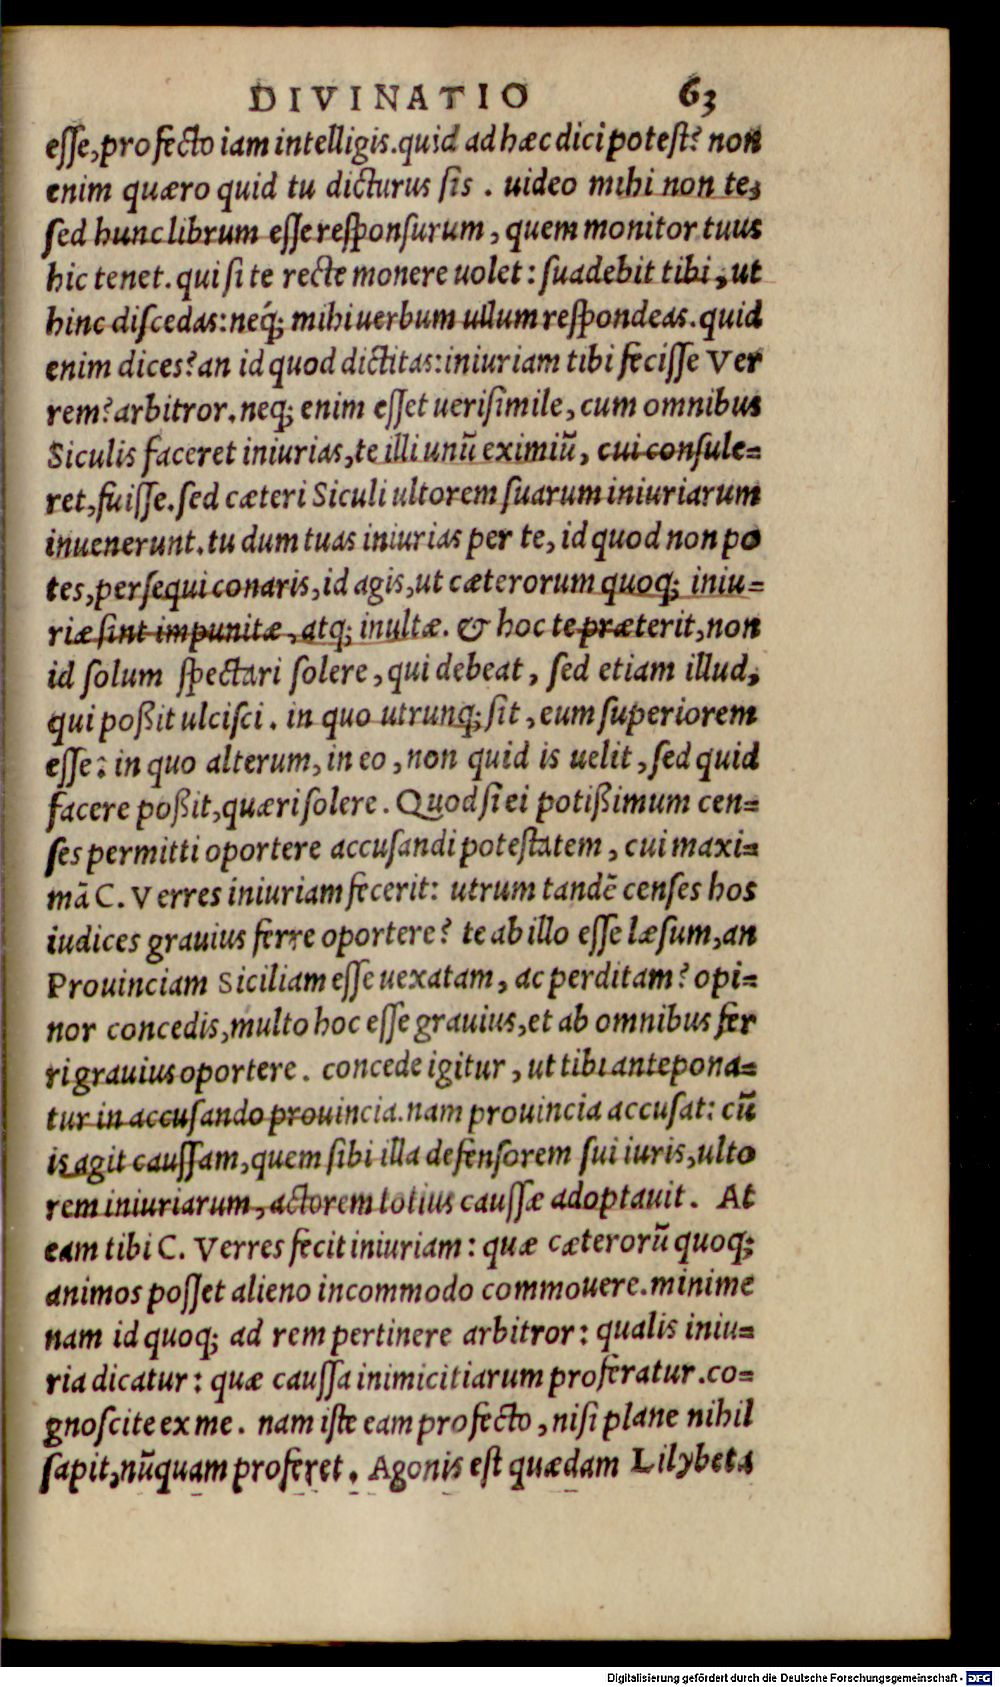 DIVINATIO 63
esse, profecto iam intelligis. quid ad hæc dici potest? non
enim quæro quid tu dicturus sis . uideo mihi non te,
sed hunc librum esse responsurum, quem monitor tuus
hic tenet. qui si te recte monere uolet: suadebit tibi, ut
hinc discedas: neq; mihi uerbum ullum respondeas. quid
enim dices? an id quod dictitas: iniuriam tibi fecisse Ver
rem? arbitror. neq; enim esset uerisimile, cum omnibus
Siculis faceret iniurias, te illi unū eximiū, cui consule=
ret, fuisse. sed cæteri Siculi ultorem suarum iniuriarum
inuenerunt. tu dum tuas iniurias per te, id quod non po
tes, persequi conaris, id agis, ut cæterorum quoq; iniu=
riæ sint impunitæ, atq; inultæ. & hoc te præterit, non
id solum spectari solere, qui debeat, sed etiam illud,
qui poßit ulcisci. in quo utrunq; sit, eum superiorem
esse: in quo alterum, in eo, non quid is uelit, sed quid
facere poßit, quæri solere. Quod si ei potißimum cen=
ses permitti oportere accusandi potestatem, cui maxi=
mā C. Verres iniuriam fecerit: utrum tandē censes hos
iudices grauius ferre oportere? te ab illo esse læsum, an
Prouinciam Siciliam esse uexatam, ac perditam? opi=
nor concedis, multo hoc esse grauius, et ab omnibus fer
ri grauius oportere. concede igitur, ut tibi antepona=
tur in accusando prouincia. nam prouincia accusat: cū
is agit caussam, quem sibi illa defensorem sui iuris, ulto
rem iniuriarum, actorem totius caussæ adoptauit. At
eam tibi C. Verres fecit iniuriam: quæ cæterorū quoq;
animos posset alieno incommodo commouere. minime
nam id quoq; ad rem pertinere arbitror: qualis iniu=
ria dicatur: quæ caussa inimicitiarum proferatur. co=
gnoscite ex me. nam iste eam profecto, nisi plane nihil
sapit, nūquam proferet. Agonis est quædam Lilybeta
Digitalisierung gefördert durch die Deutsche Forschungsgemeinschaft - DFG